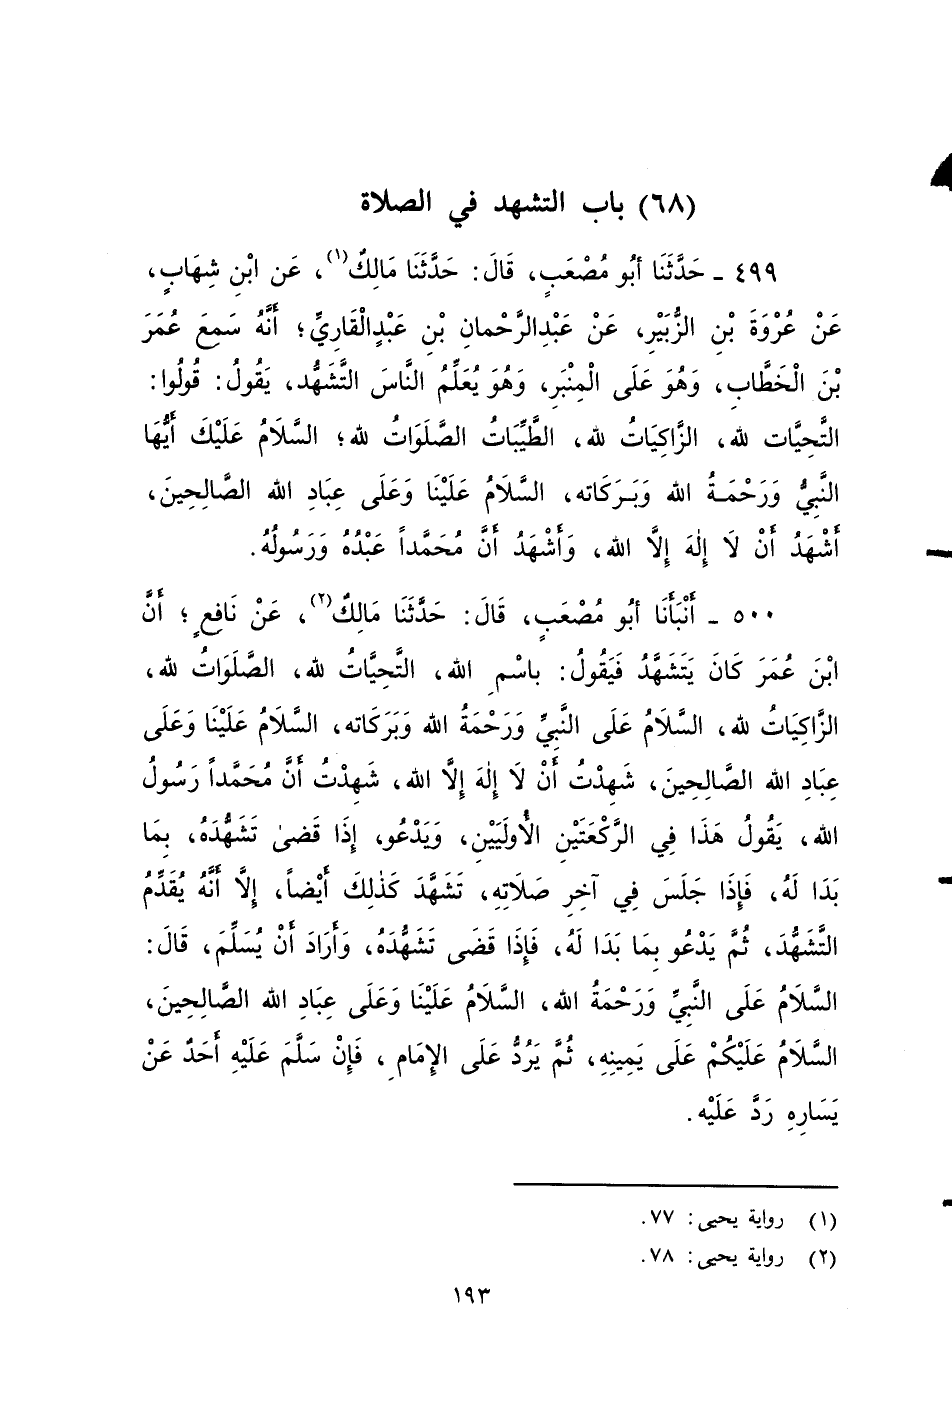 (٦٨) باب التشهد في الصلاة
٤٩٩ ـ حَدَّثَنَا أبُو مُصْعَبٍ، قَالَ: حَدَّثَنَا مَالِكٌ(١)، عَن ابْنِ شِهَابٍ،
عَنْ عُرْوَةَ بْنِ الزُّبَيْرِ، عَنْ عَبْدِالرَّحْمانِ بْنِ عَبْدٍالْقَارِيِّ؛ أَنَّهُ سَمِعَ عُمَرَ
بْنَ الْخَطَّابِ، وَهُوَ عَلَى الْمِنْبَرِ، وَهُوَ يُعَلِّمُ النَّاسَ التَّشَهُّدَ، يَقُولُ: قُولُوا:
التَّحِيَّات لله، الزَّاكِيَاتُ لله، الطَّيِّبَاتُ الصَّلَوَاتُ لله؛ السَّلَامُ عَلَيْكَ أَيُّهَا
النَّبِيُّ وَرَحْمَةُ الله وَبَرَكَاته، السَّلَامُ عَلَيْنَا وَعَلَى عِبَادِ الله الصَّالِحِينَ،
أَشْهَدُ أَنْ لَا إِلٰهَ إِلَّا الله، وَأَشْهَدُ أَنَّ مُحَمَّداً عَبْدُهُ وَرَسُولُهُ.
٥٠٠ ـ أَنْبَأَنَا أبُو مُصْعَبٍ، قَالَ: حَدَّثَنَا مَالِكٌ(٢)، عَنْ نَافِعٍ؛ أَنَّ
ابْنَ عُمَرَ كَانَ يَتَشَهَّدُ فَيَقُولُ: باسْمِ الله، التَّحِيَّاتُ لله، الصَّلَوَاتُ لله،
الزَّاكِيَاتُ لله، السَّلَامُ عَلَى النَّبِيِّ وَرَحْمَةُ الله وَبَرَكَاته، السَّلَامُ عَلَيْنَا وَعَلَى
عِبَادِ الله الصَّالِحِينَ، شَهِدْتُ أَنْ لَا إِلٰهَ إِلَّا الله، شَهِدْتُ أَنَّ مُحَمَّداً رَسُولُ
الله، يَقُولُ هَذَا فِي الرَّكْعَتَيْنِ الأُولَيَيْنِ، وَيَدْعُو، إِذَا قَضىٰ تَشَهُّدَهُ، بِمَا
بَدَا لَهُ، فَإِذَا جَلَسَ فِي آخِرِ صَلَاتِهِ، تَشَهَّدَ كَذٰلِكَ أَيْضاً، إِلَّا أَنَّهُ يُقَدِّمُ
التَّشَهُّدَ، ثُمَّ يَدْعُو بِمَا بَدَا لَهُ، فَإِذَا قَضَى تَشَهُّدَهُ، وَأَرَادَ أَنْ يُسَلِّمَ، قَالَ:
السَّلَامُ عَلَى النَّبِيِّ وَرَحْمَةُ الله، السَّلَامُ عَلَيْنَا وَعَلَى عِبَادِ الله الصَّالِحِينَ،
السَّلَامُ عَلَيْكُمْ عَلَى يَمِينِهِ، ثُمَّ يَرُدُّ عَلَى الإِمَامِ، فَإِنْ سَلَّمَ عَلَيْهِ أَحَدٌ عَنْ
يَسَارِهِ رَدَّ عَلَيْه.
(١) رواية يحيى: ٧٧.
(٢) رواية يحيى: ٧٨.
١٩٣